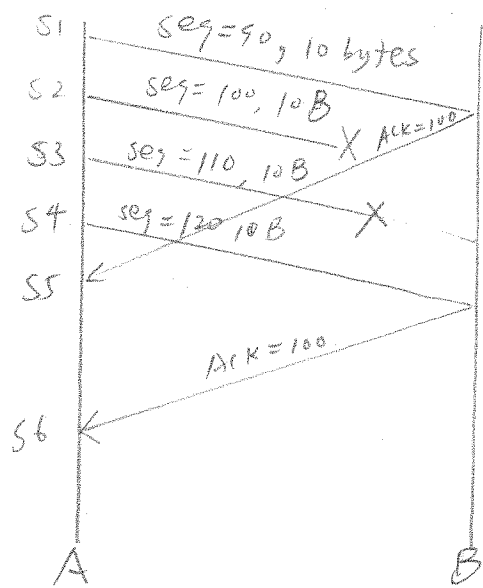 S1
seq=90, 10 bytes
S2
seq=100, 10B
X
Ack=100
S3
seq=110, 10B
X
S4
seq=120 10B
S5
Ack=100
S6
A
B